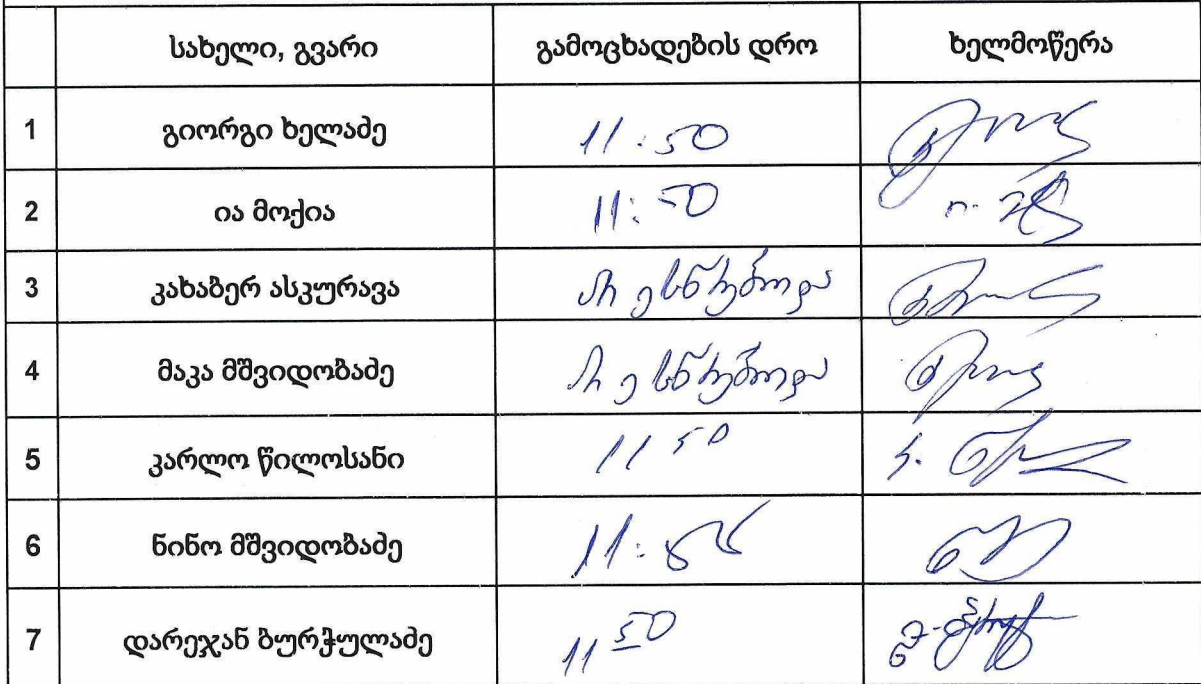 სახელი, გვარი გამოცხადების დრო ხელმოწერა
1 გიორგი ხელაძე 11:50
2 ია მოქია 11:50
3 კახაბერ ასკურავა არ ესწრებოდა
4 მაკა მშვიდობაძე არ ესწრებოდა
5 კარლო წილოსანი 11 50
6 ნინო მშვიდობაძე
7 დარეჯან ბურჭულაძე 11 50